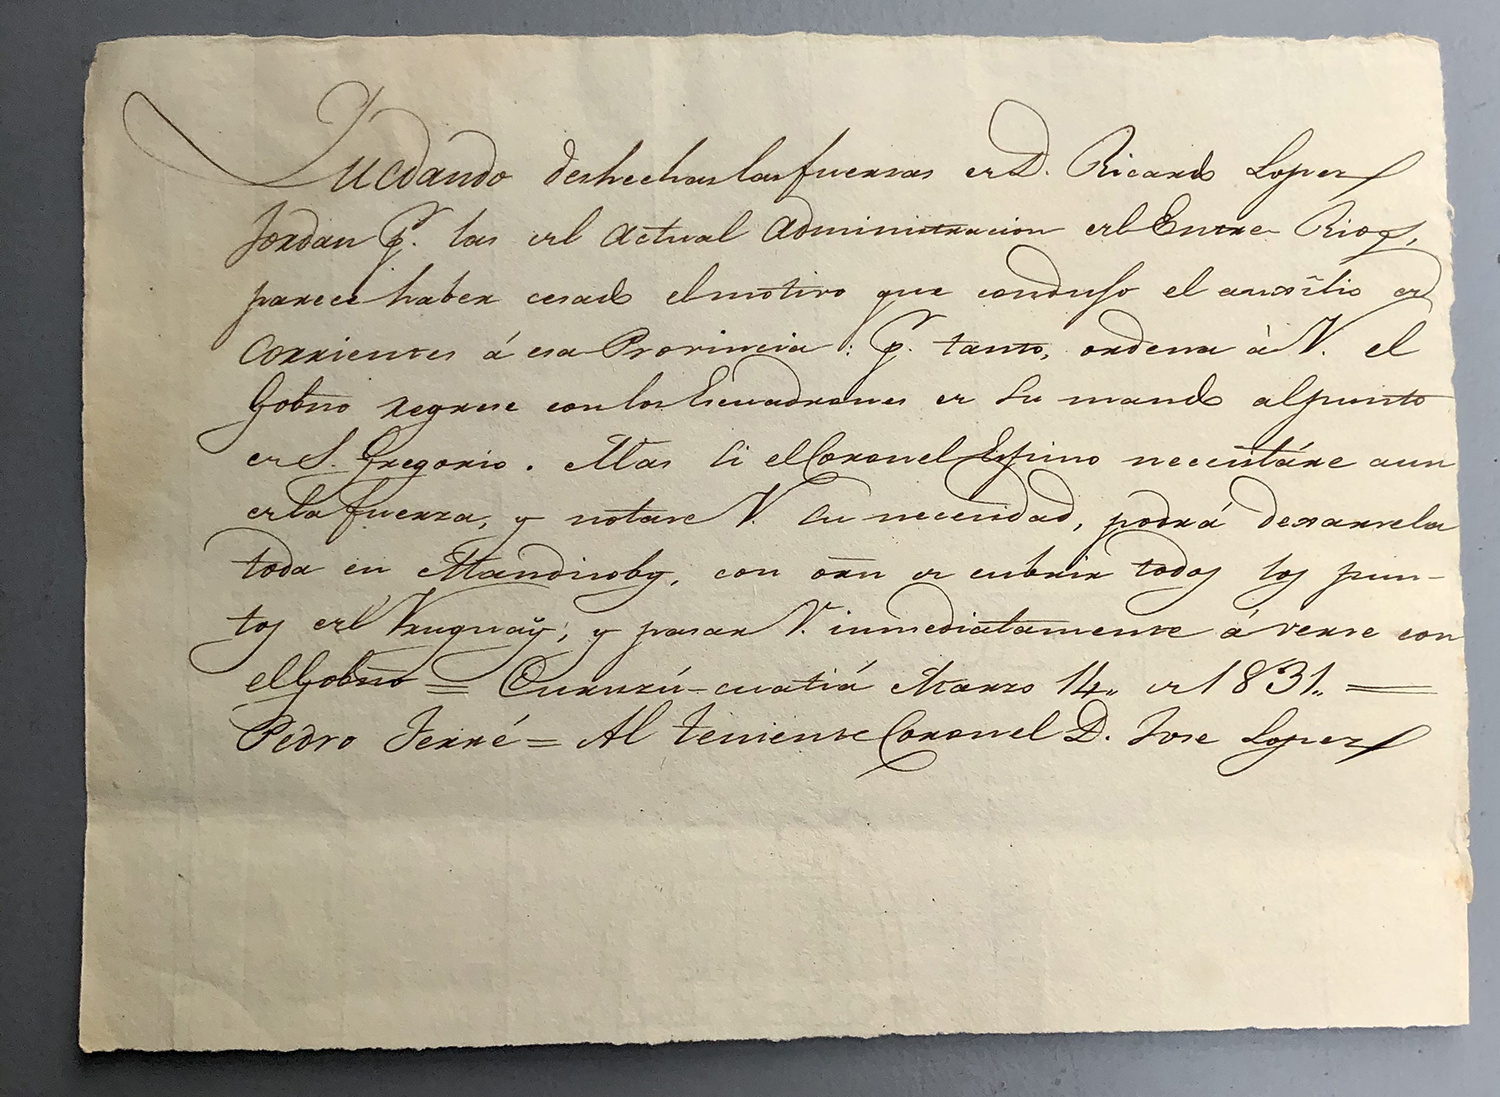 Quedando deshechas las fuersas de D. Ricardo Lopez
Jordan pr. las del actual Administracion del Entre Rios,
parece haber cesado el motivo que condujo el auxilio de
Corrientes á esa Provincia: pr. tanto, ordena à V. el
Gobno regrese con los Escuadrones de su mando al punto
de S. Gregorio. Mas si el Coronel Espino necesitáre aun
de la fuerza, y notase V. su necesidad, podrá dexarsela
toda en Mandisoby, con orn de cubrir todos los pun-
tos del Uruguay; y pasar V. inmediatamente á verse con
el Gobno = Curuzú-cuatiá Marzo 14,, de 1831,, =
Pedro Ferré = Al Teniente Coronel D. Jose Lopez